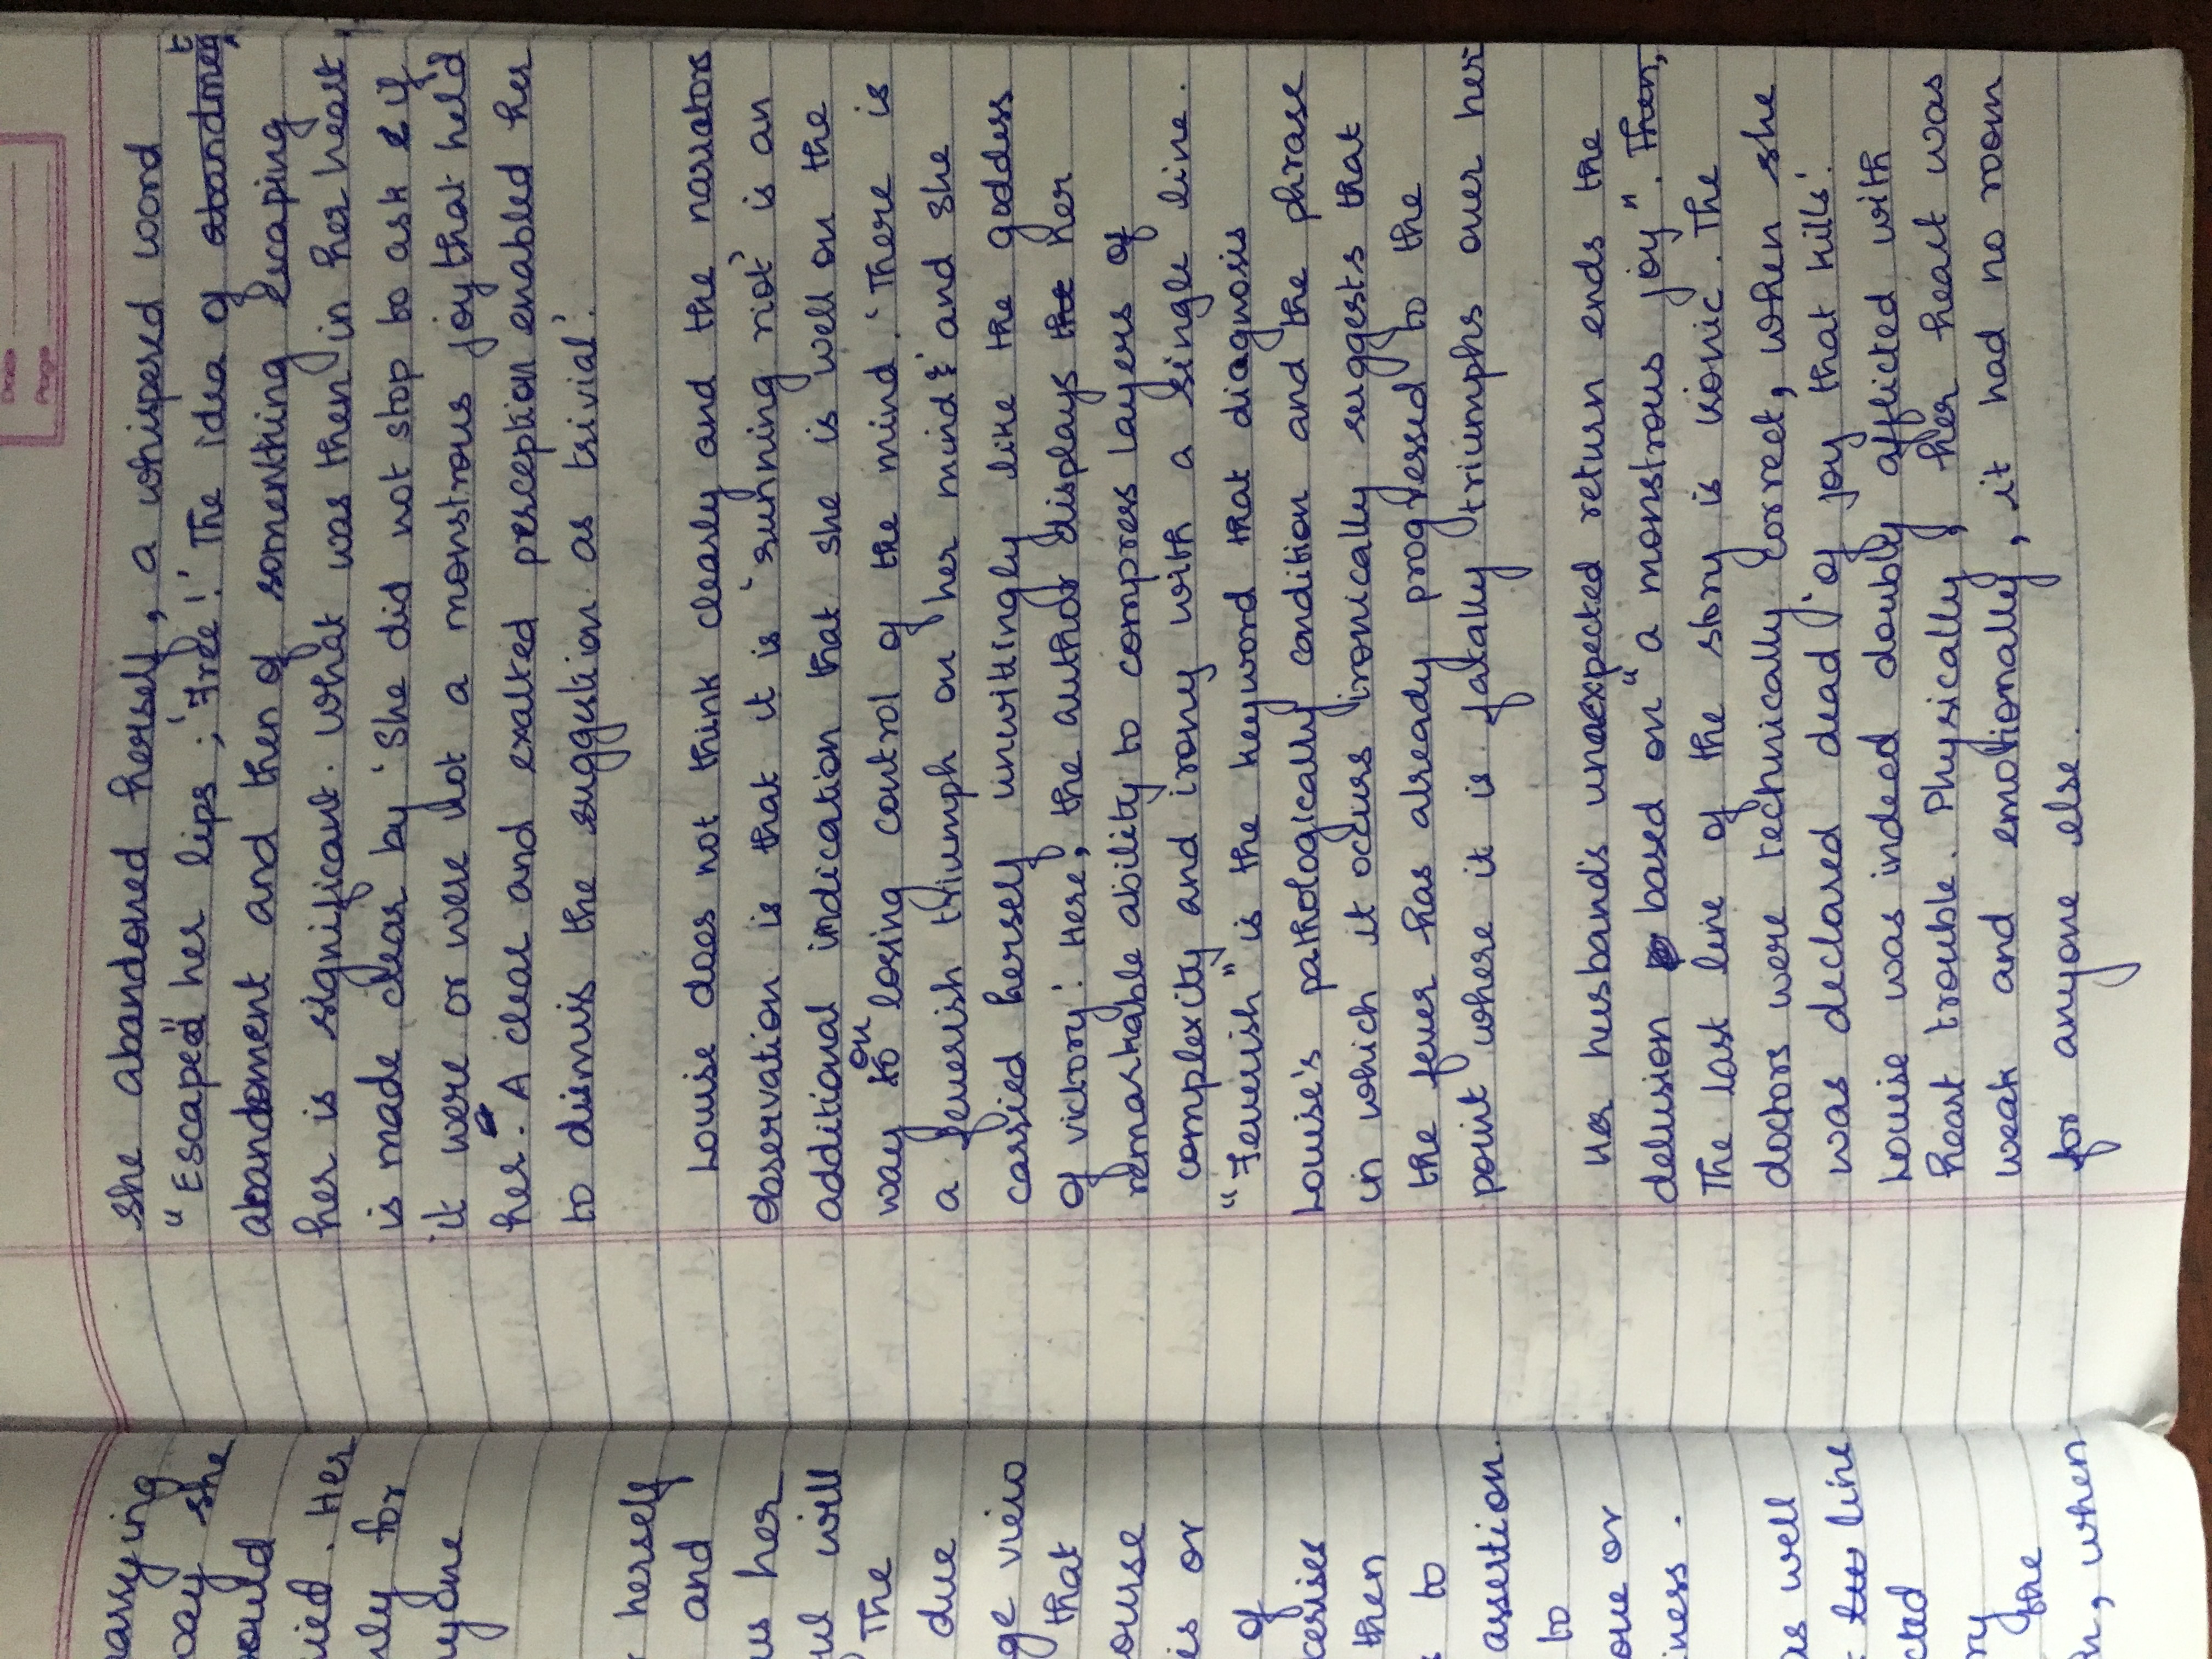 Date
Page
marrying
way she
would
ried. Her
nly for
nyone
herself
and
us her
ul will
The
due
ge view
that
ourse
is or
of
cerises
then
s to
assertion.
to
ove or
iness.
as well
line
cted
ry
the
n, when
she abandoned herself, a whispered word
"Escaped" her lips; 'Free!' The idea of abandment
abandoment and then of somenthing escaping
her is significant. What was then in her heart,
is made clear by 'She did not stop to ask if
it were or were not a monstrous joy that held
her. A clear and exalted perception enabled her
to dismiss the suggestion as trivial'.
Louise does not think clearly and the narrators
observation is that it is 'running riot' is an
additional indication that she is well on the
way to on losing control of the mind. 'There is
a feverish triumph on her mind' and she
carried herself unwittingly like the goddess
of victory'. Here, the author displays the her
remarkable ability to compress layers of
complexity and irony with a single line.
"Feverish" is the keyword that diagnosis
Louise's pathologically condition and the phrase
in which it occurs ironically suggests that
the fever has already progressed to the
point where it is fatally triumphs over her
Her husband's unexpected return ends the
delusion based on "a monstrous joy". Then,
The last line of the story is ironic. The
doctors were technically correct, when she
was declared dead 'of joy that kills'.
Louise was indeed doubly afflicted with
heart trouble. Physically, her heart was
weak and emotionally, it had no room
for anyone else.